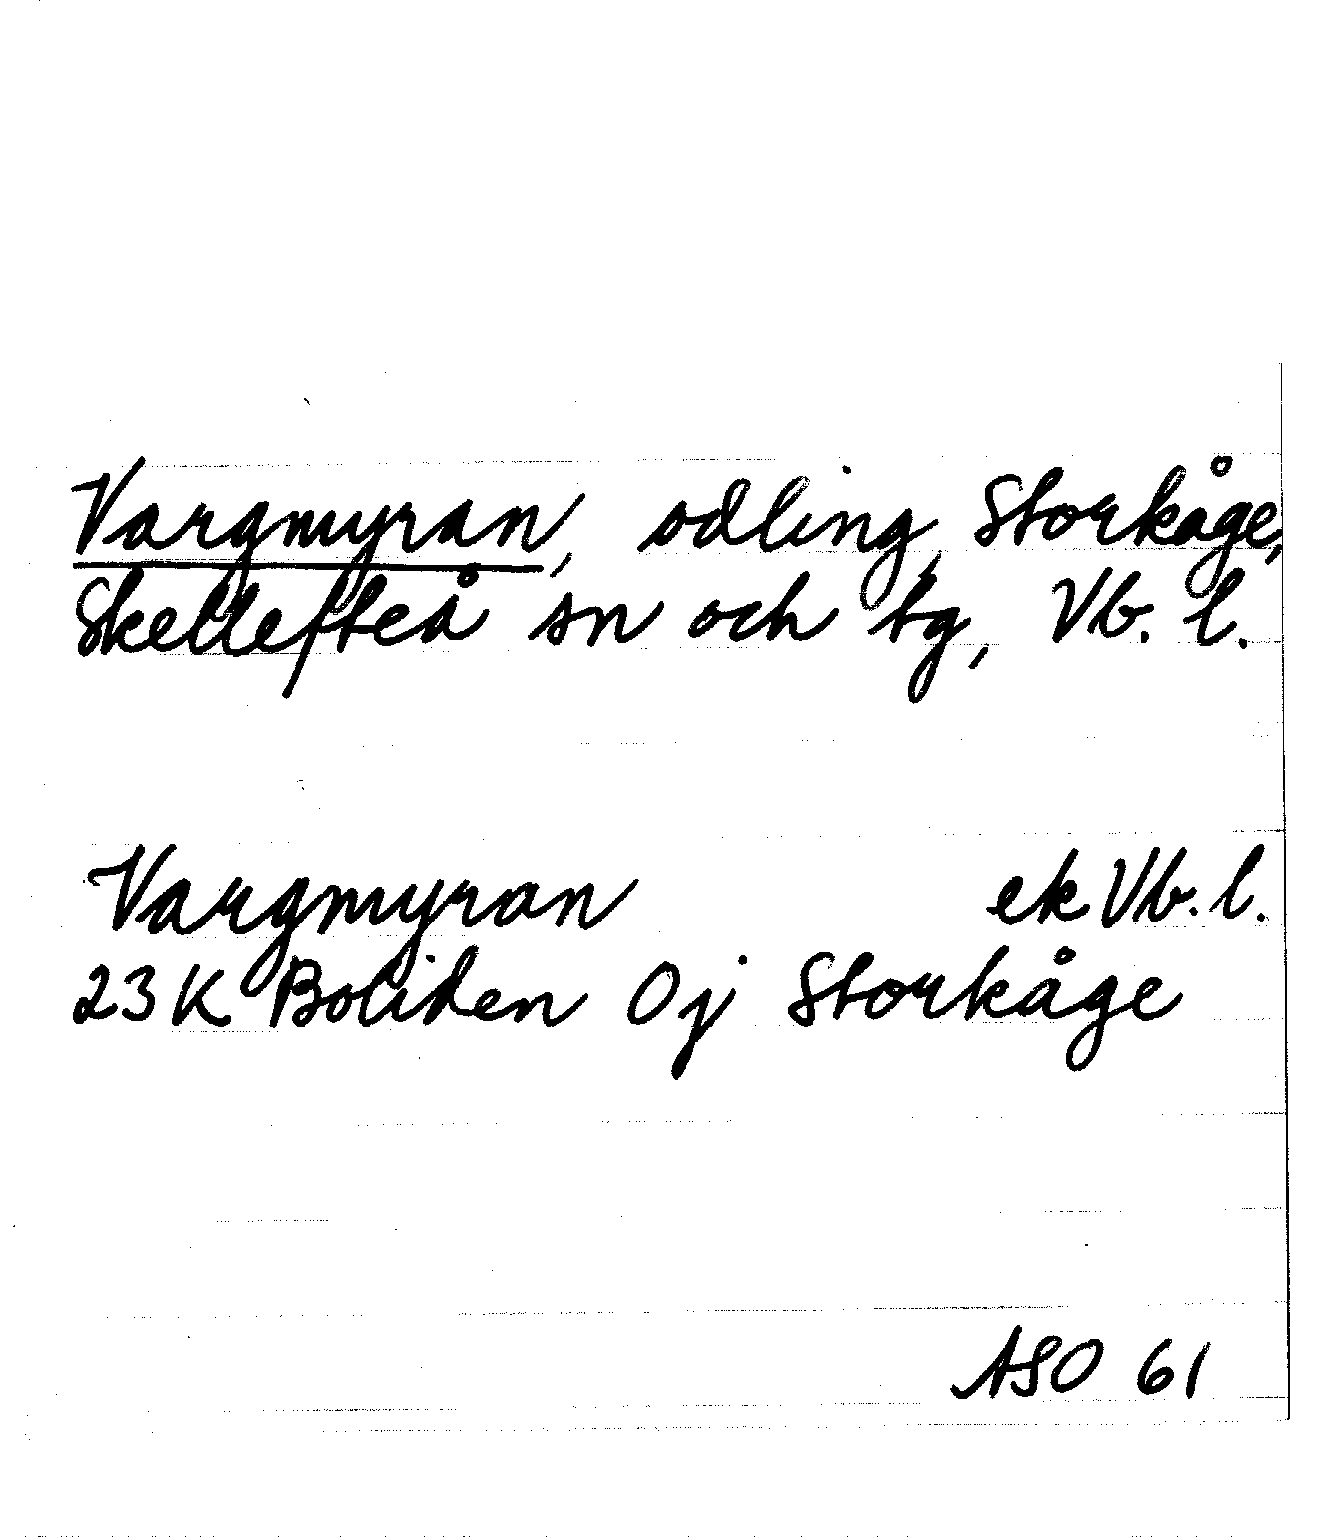 Vargmyran, odling, Storkåge,
Skellefteå sn och tg, Vb. l.
Vargmyran ek Vb. l.
23 K Boliden Oj Storkåge
ASO 61